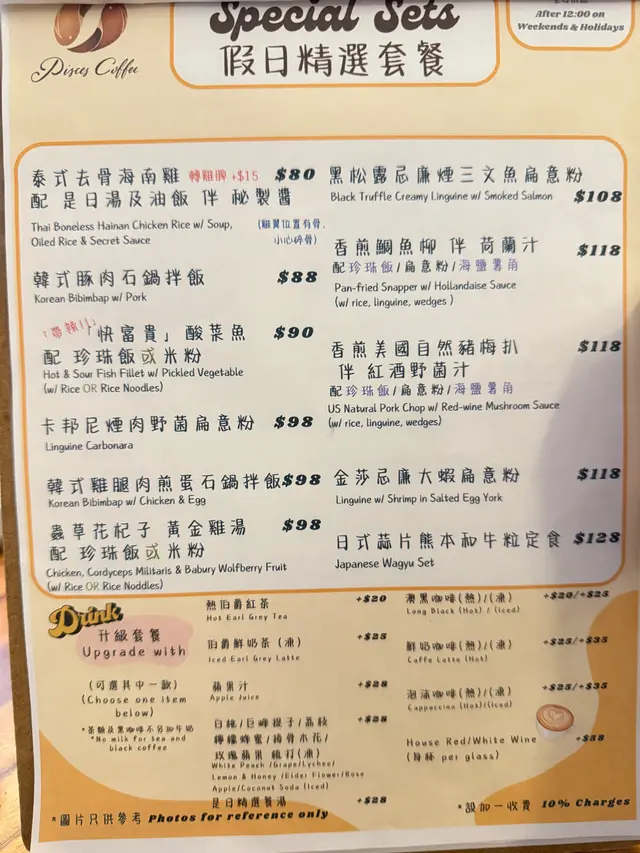 Pisces Coffee
Special Sets
假日精選套餐
After 12:00 on
Weekends & Holidays
泰式去骨海南雞 轉雞脾 +$15 $80
配 是日湯及油飯 伴 秘製醬
Thai Boneless Hainan Chicken Rice w/ Soup,
Oiled Rice & Secret Sauce
(雞翼位置有骨,
小心碎骨)
韓式豚肉石鍋拌飯 $88
Korean Bibimbap w/ Pork
「帶辣!!」
「快富貴」酸菜魚 $90
配 珍珠飯或米粉
Hot & Sour Fish Fillet w/ Pickled Vegetable
(w/ Rice OR Rice Noodles)
卡邦尼煙肉野菌扁意粉 $98
Linguine Carbonara
韓式雞腿肉煎蛋石鍋拌飯 $98
Korean Bibimbap w/ Chicken & Egg
蟲草花杞子 黃金雞湯 $98
配 珍珠飯或米粉
Chicken, Cordyceps Militaris & Babury Wolfberry Fruit
(w/ Rice OR Rice Noddles)
黑松露忌廉煙三文魚扁意粉
Black Truffle Creamy Linguine w/ Smoked Salmon $108
香煎鯛魚柳 伴 荷蘭汁 $118
配珍珠飯/扁意粉/海鹽薯角
Pan-fried Snapper w/ Hollandaise Sauce
(w/ rice, linguine, wedges )
香煎美國自然豬梅扒 $118
伴 紅酒野菌汁
配珍珠飯/扁意粉/海鹽薯角
US Natural Pork Chop w/ Red-wine Mushroom Sauce
(w/ rice, linguine, wedges)
金莎忌廉大蝦扁意粉 $118
Linguine w/ Shrimp in Salted Egg York
日式蒜片熊本和牛粒定食 $128
Japanese Wagyu Set
Drink
升級套餐
Upgrade with
(可選其中一款)
(Choose one item
below)
*茶類及黑咖啡不另加牛奶
*No milk for tea and
black coffee
熱伯爵紅茶 +$20
Hot Earl Grey Tea
伯爵鮮奶茶 (凍) +$25
Iced Earl Grey Latte
蘋果汁 +$28
Apple Juice
白桃/巨峰提子/荔枝 +$28
檸檬蜂蜜/接骨木花/
玫瑰蘋果 梳打(凍)
White Peach /Grape/Lychee/
Lemon & Honey /Elder Flower/Rose
Apple/Coconut Soda (Iced)
是日精選餐湯 +$28
澳黑咖啡(熱)/(凍) +$20/+$25
Long Black (Hot) / (Iced)
鮮奶咖啡(熱)/(凍) +$25/+$35
Caffe Latte (Hot)
泡沫咖啡(熱)/(凍) +$25/+$35
Cappuccino (Hot)/(Iced)
House Red/White Wine +$58
(每杯 per glass)
*圖片只供參考 Photos for reference only
*設加一收費 10% Charges